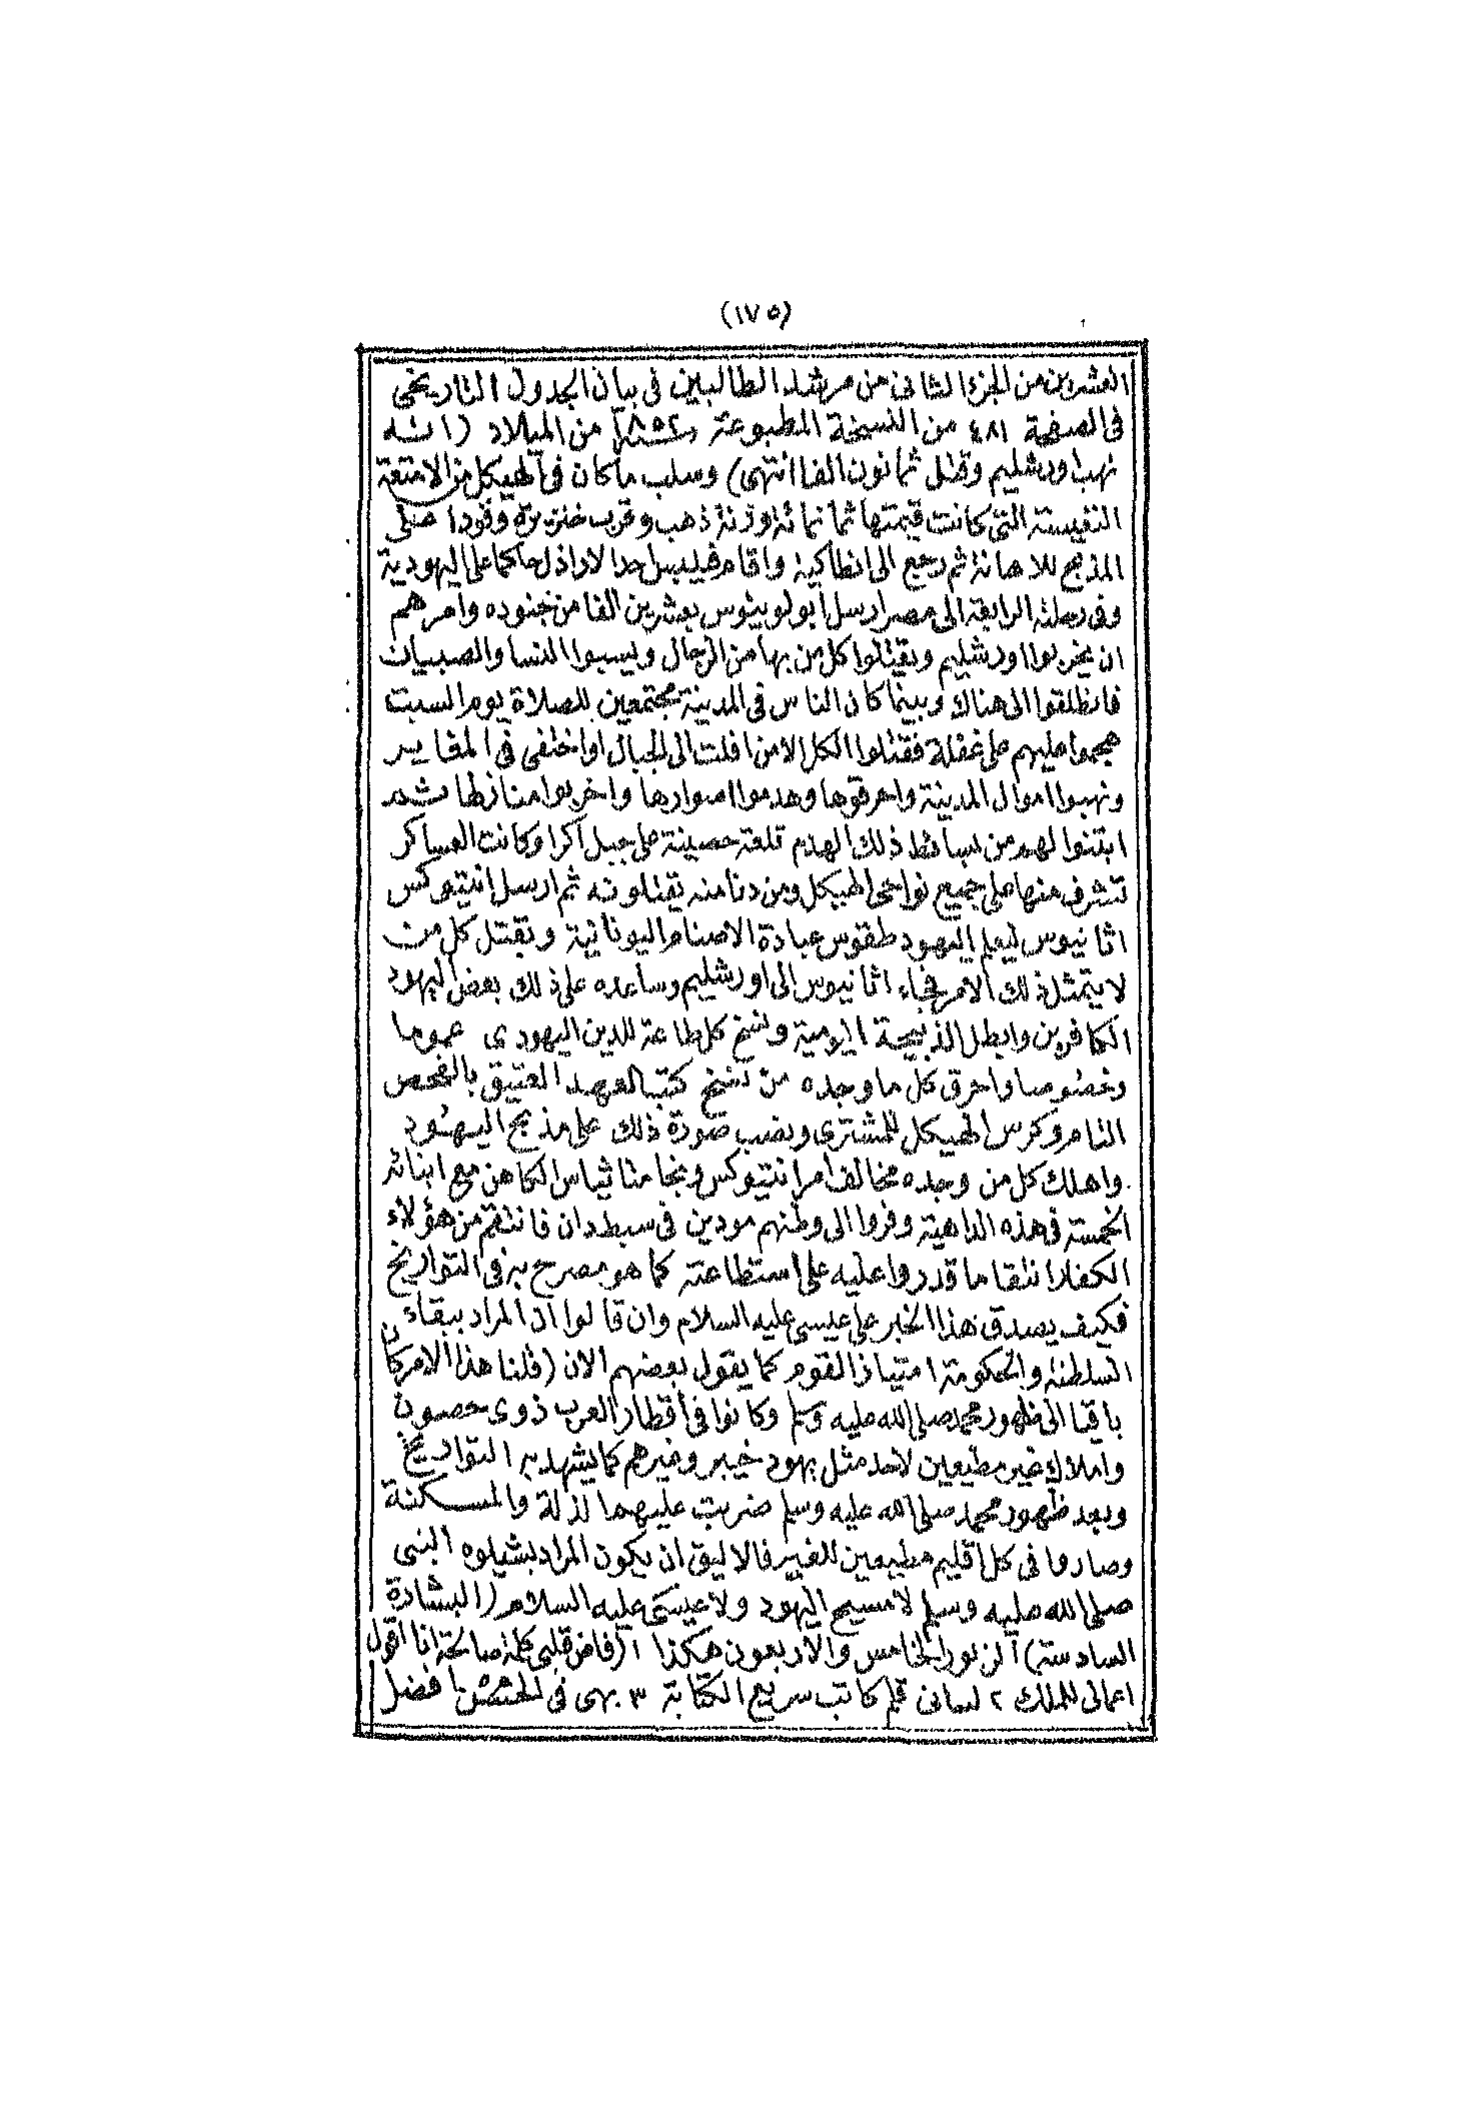 (١٧٥)
العشرين من الجزء الثانى من مرشد الطالبين فى بيان الجدول التاريخى
فى الصفحة ٤٨١ من النسخة المطبوعة سنة ١٨٥٢ من الميلاد (انه
نهب اورشليم وقتل ثمانون الفا انتهى) وسلب ما كان فى الهيكل من الامتعة
النفيسة التى كانت قيمتها ثمانمائة وزنة ذهب وقرب خنزيرة وقودا على
المذبح للاهانة ثم رجع الى انطاكية واقام فيلبس احد الاراذل حاكما على اليهودية
وفى رحلته الرابعة الى مصر ارسل ابولوينوس بعشرين الفا من جنوده وامرهم
ان يخربوا اورشليم ويقتلوا كل من بها من الرجال ويسبوا النسا والصبيان
فانطلقوا الى هناك وبينما كان الناس فى المدينة مجتمعين للصلاة يوم السبت
هجموا عليهم على غفلة فقتلوا الكل الا من افلت الى الجبال او اختفى فى المغاير
ونهبوا اموال المدينة واحرقوها وهدموا اسوارها واخربوا منازلها ثم
ابتنوا لهم من بسائط ذلك الهدم قلعة حصينة على جبل اكرا وكانت العساكر
تشرف منها على جميع نواحى الهيكل ومن دنا منه يقتلونه ثم ارسل انتيوكس
اثانيوس ليعلم اليهود طقوس عبادة الاصنام اليونانية ويقتل كل من
لا يتمثل ذلك الامر فجاء اثانيوس الى اورشليم وساعده على ذلك بعض اليهود
الكافرين وابطل الذبيحة اليومية ونسخ كل طاعة للدين اليهودى عموما
وخصوصا واحرق كل ما وجده من نسخ كتب العهد العتيق بالفحص
التام وكرس الهيكل للمشترى ونصب صورة ذلك على مذبح اليهود
واهلك كل من وجده مخالف امر انتيوكس ونجا متاثياس الكاهن مع ابنائه
الخمسة فى هذه الداهية وفروا الى وطنهم مودين فى سبط دان فانتقم من هؤلاء
الكفار انتقاما قدروا عليه على استطاعته كما هو مصرح به فى التواريخ
فكيف يصدق هذا الخبر على عيسى عليه السلام وان قالوا ان المراد ببقاء
السلطنة والحكومة امتياز القوم كما يقول بعضهم الان (قلنا هذا الامر كان
باقيا الى ظهور محمد صلى الله عليه وسلم وكانوا فى اقطار العرب ذوى حصون
واملاك غير مطيعين لاحد مثل يهود خيبر وغيرهم كما يشهد به التواريخ
وبعد ظهور محمد صلى الله عليه وسلم ضربت عليهم الذلة والمسكنة
وصاروا فى كل اقليم مطيعين للغير فالاليق ان يكون المراد بشيلوه النبى
صلى الله عليه وسلم لا مسيح اليهود ولا عيسى عليه السلام (البشارة
السادسة) الزبور الخامس والاربعون هكذا ١ (فاض قلبى كلمة صالحة انا اقول
اعمالى للملك ٢ لسانى قلم كاتب سريع الكتابة ٣ بهى فى الحسن افضل